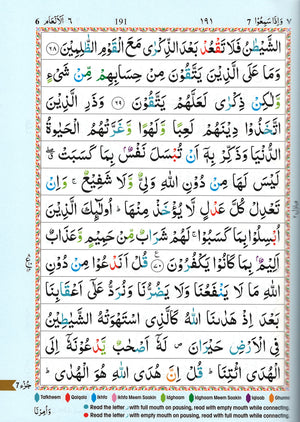 6 الانعام ٦ 191 ١٩١ 7 واذا سمعوا ٧
الشَّيْطٰنُ فَلَا تَقْعُدْ بَعْدَ الذِّكْرٰى مَعَ الْقَوْمِ الظّٰلِمِيْنَ ٦٨
وَمَا عَلَى الَّذِيْنَ يَتَّقُوْنَ مِنْ حِسَابِهِمْ مِّنْ شَىْءٍ
وَّلٰكِنْ ذِكْرٰى لَعَلَّهُمْ يَتَّقُوْنَ ٦٩ وَذَرِ الَّذِيْنَ
اتَّخَذُوْا دِيْنَهُمْ لَعِبًا وَّلَهْوًا وَّغَرَّتْهُمُ الْحَيٰوةُ
الدُّنْيَا وَذَكِّرْ بِهٖٓ اَنْ تُبْسَلَ نَفْسٌۢ بِمَا كَسَبَتْ
لَيْسَ لَهَا مِنْ دُوْنِ اللّٰهِ وَلِىٌّ وَّلَا شَفِيْعٌ ۚ وَاِنْ
تَعْدِلْ كُلَّ عَدْلٍ لَّا يُؤْخَذْ مِنْهَا ؕ اُولٰٓئِكَ الَّذِيْنَ
اُبْسِلُوْا بِمَا كَسَبُوْا ۚ لَهُمْ شَرَابٌ مِّنْ حَمِيْمٍ وَّعَذَابٌ
اَلِيْمٌۢ بِمَا كَانُوْا يَكْفُرُوْنَ ٧٠ قُلْ اَنَدْعُوْا مِنْ دُوْنِ
اللّٰهِ مَا لَا يَنْفَعُنَا وَلَا يَضُرُّنَا وَنُرَدُّ عَلٰٓى اَعْقَابِنَا
بَعْدَ اِذْ هَدٰىنَا اللّٰهُ كَالَّذِى اسْتَهْوَتْهُ الشَّيٰطِيْنُ
فِى الْاَرْضِ حَيْرَانَ ۪ لَهٗۤ اَصْحٰبٌ يَّدْعُوْنَهٗۤ اِلَى
الْهُدَى ائْتِنَا ؕ قُلْ اِنَّ هُدَى اللّٰهِ هُوَ الْهُدٰى ؕ
Tafkheem Qalqala Ikhfa Ikhfa Meem Saakin Idghaam Idghaam Meem Saakin Iqlaab Ghunna
Read the letter with full mouth on pausing, read with empty mouth while connecting.
Read the letter with empty mouth on pausing, read with full mouth while connecting.
وَاُمِرْنَا